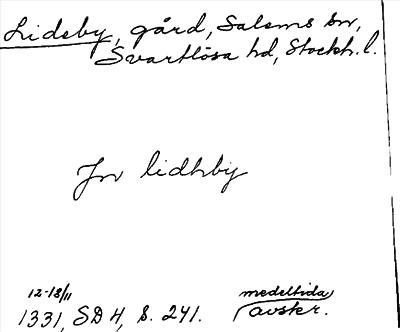 Lideby, gård, Salems sn,
Svartlösa hd, Stockh. l.
Jn lidhby
12-18/11 medeltida
1331, SD 4, s. 241. avskr.